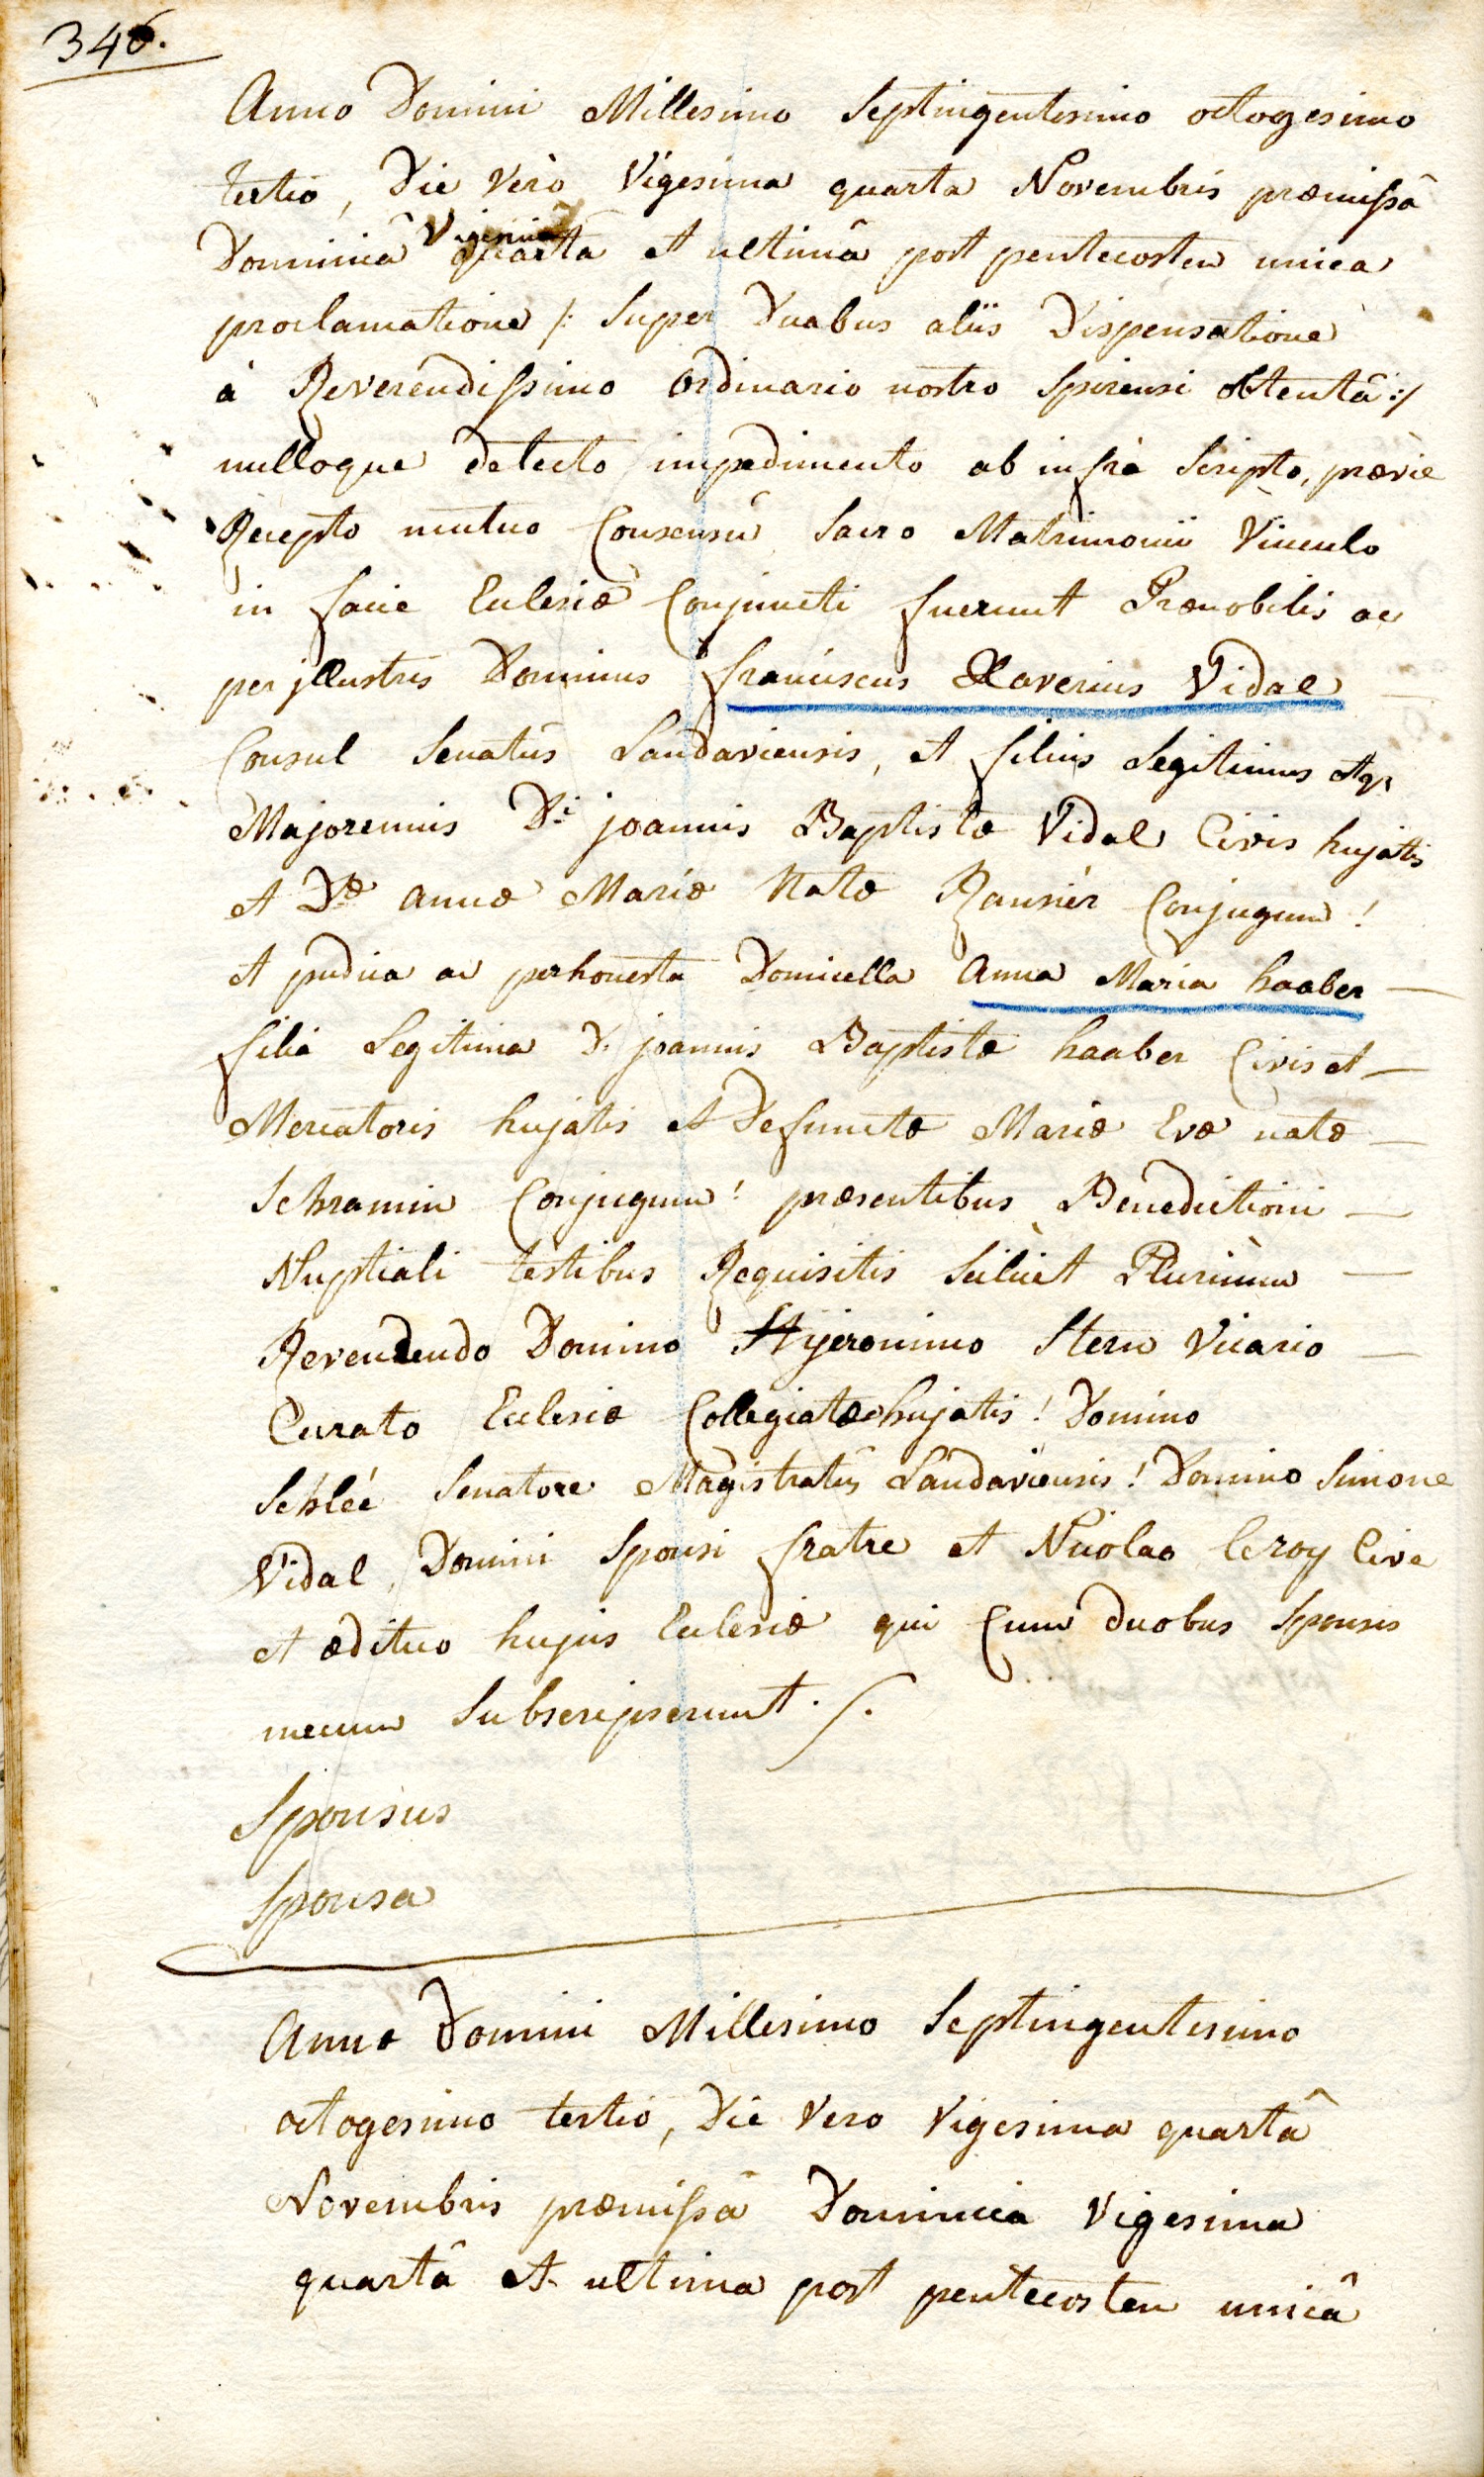 346.
Anno Domini Millesimo Septingentesimo octogesimo
tertio, Die Verò Vigesima quarta Novembris præmissâ
Dominicâ Vigesimâ quarta et ultimâ post pentecosten unica
proclamatione /: Super Duabus aliis Dispensatione
à Reverendissimo Ordinario nostro Spirensi obtentâ :/
nulloque detecto impedimento ab infrà Scripto, prævie
Recepto mutuo Consensu Sacro Matrimonii Vinculo
in facie Eclesiæ Conjuncti fuerunt Prænobilis ac
perjllustris Dominus franciscus Xaverius Vidal
Consul Senatûs Landaviensis, et filius Legitimus atq.
Majorennis D.i joannis Baptistæ Vidal Civis hujatis
et D.æ annæ Mariæ Natæ Conjugum !
et pudica ac perhonesta Domicella Anna Maria haaber
filia Legitima D. joannis Baptistæ haaber Civis et
Mercatoris hujatis et Defunctæ Mariæ Evæ natæ
Schramin Conjugum ! præsentibus Benedictioni
Nuptiali testibus Requisitis Scilicèt Plurimùm
Reverendendo Domino Hyeronimo Stern Vicario
Curato Eclesiæ Collegiatæ hujatis ! Domino
Schléé Senatore Magistratûs Landaviensis ! Domino Simone
Vidal, Domini Sponsi fratre et Nicolao leroy Cive
et ædituo hujus Eclesiæ qui Cum duobus Sponsis
mecum Subscripserunt ./.
Sponsus
Sponsa
Anno Domini Millesimo Septingentesimo
octogesimo tertio, Die Vero Vigesima quartâ
Novembris præmissâ Dominica Vigesima
quartâ et ultima post pentecosten unicâ